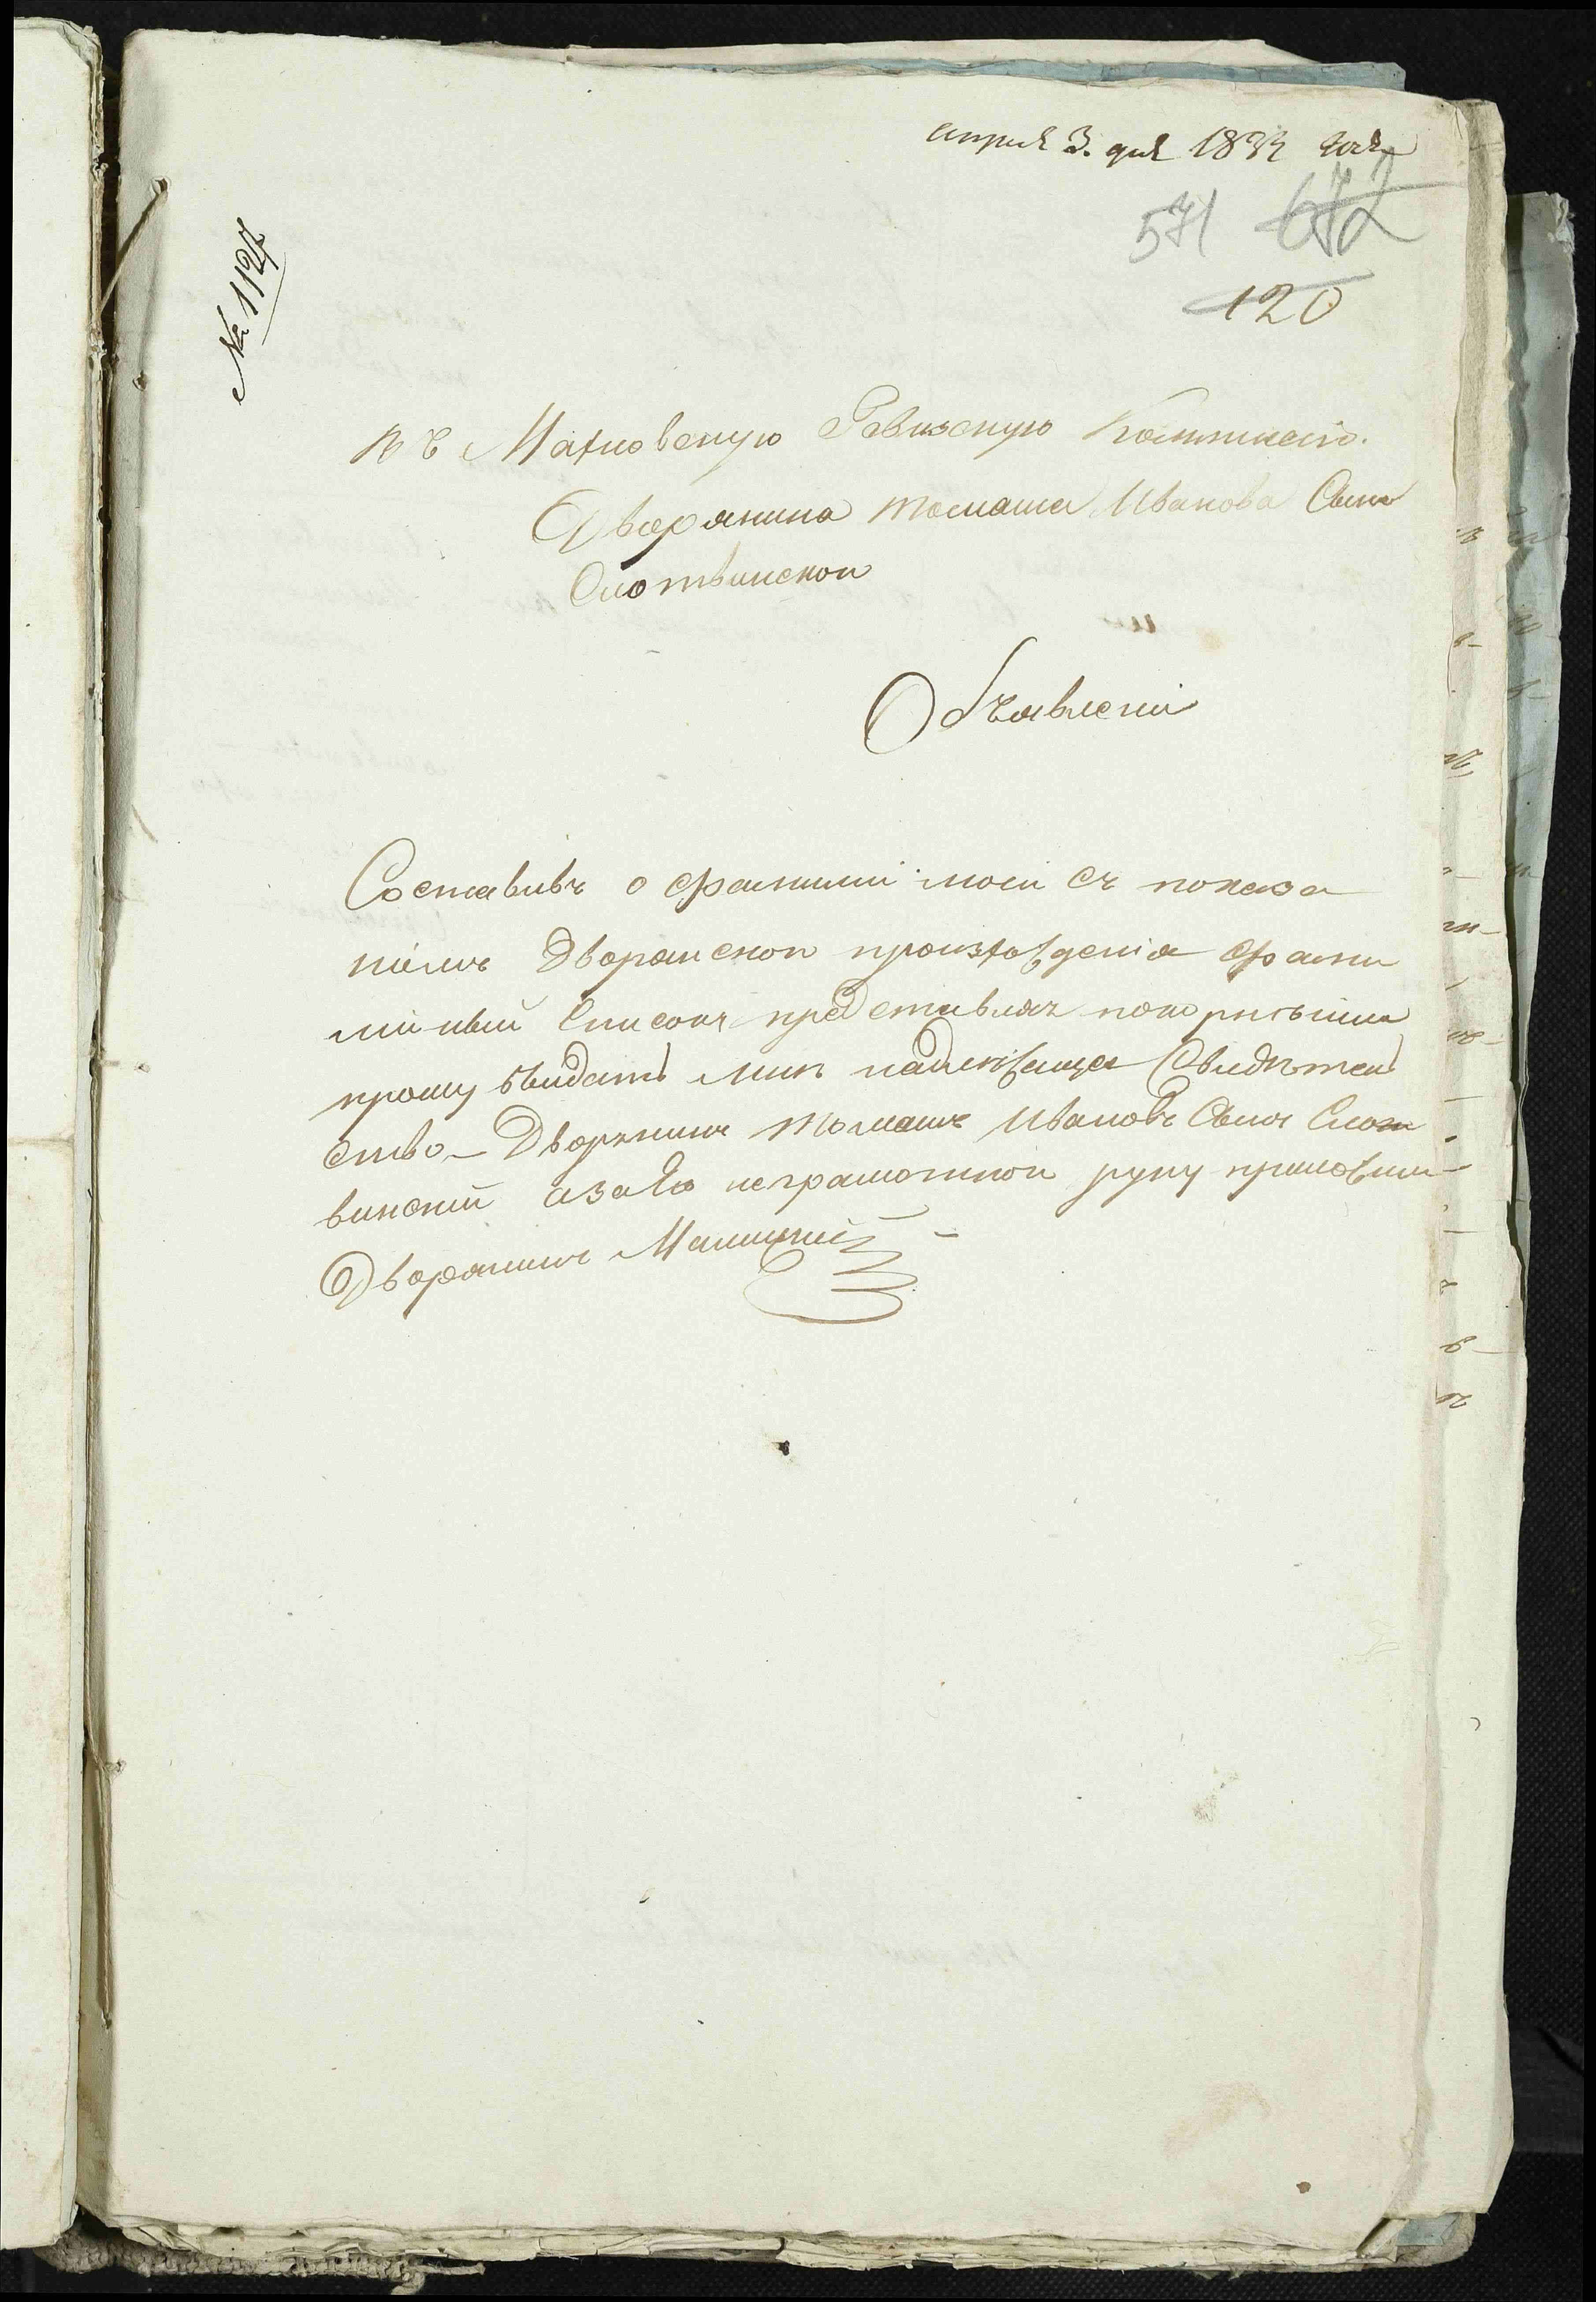 апреля 3. дня 1832 года
571 672
120
№ 1127
Въ Махновскую Ревизскую Коммисию.
Дворянина Томаша Иванова Сына
Слотвинскои
Объявленіи
Составивъ о фамиліи моеи съ показа
ніемъ Дворянскои произхожденія фами
лійный Списокъ представляя покорнейше
прошу выидать мнѣ надлежаща Свидѣтель
ство — Дворянинъ Томашъ Ивановъ Сынъ Слот
винскій а за его неграмотнои руку приложил
Дворянинъ